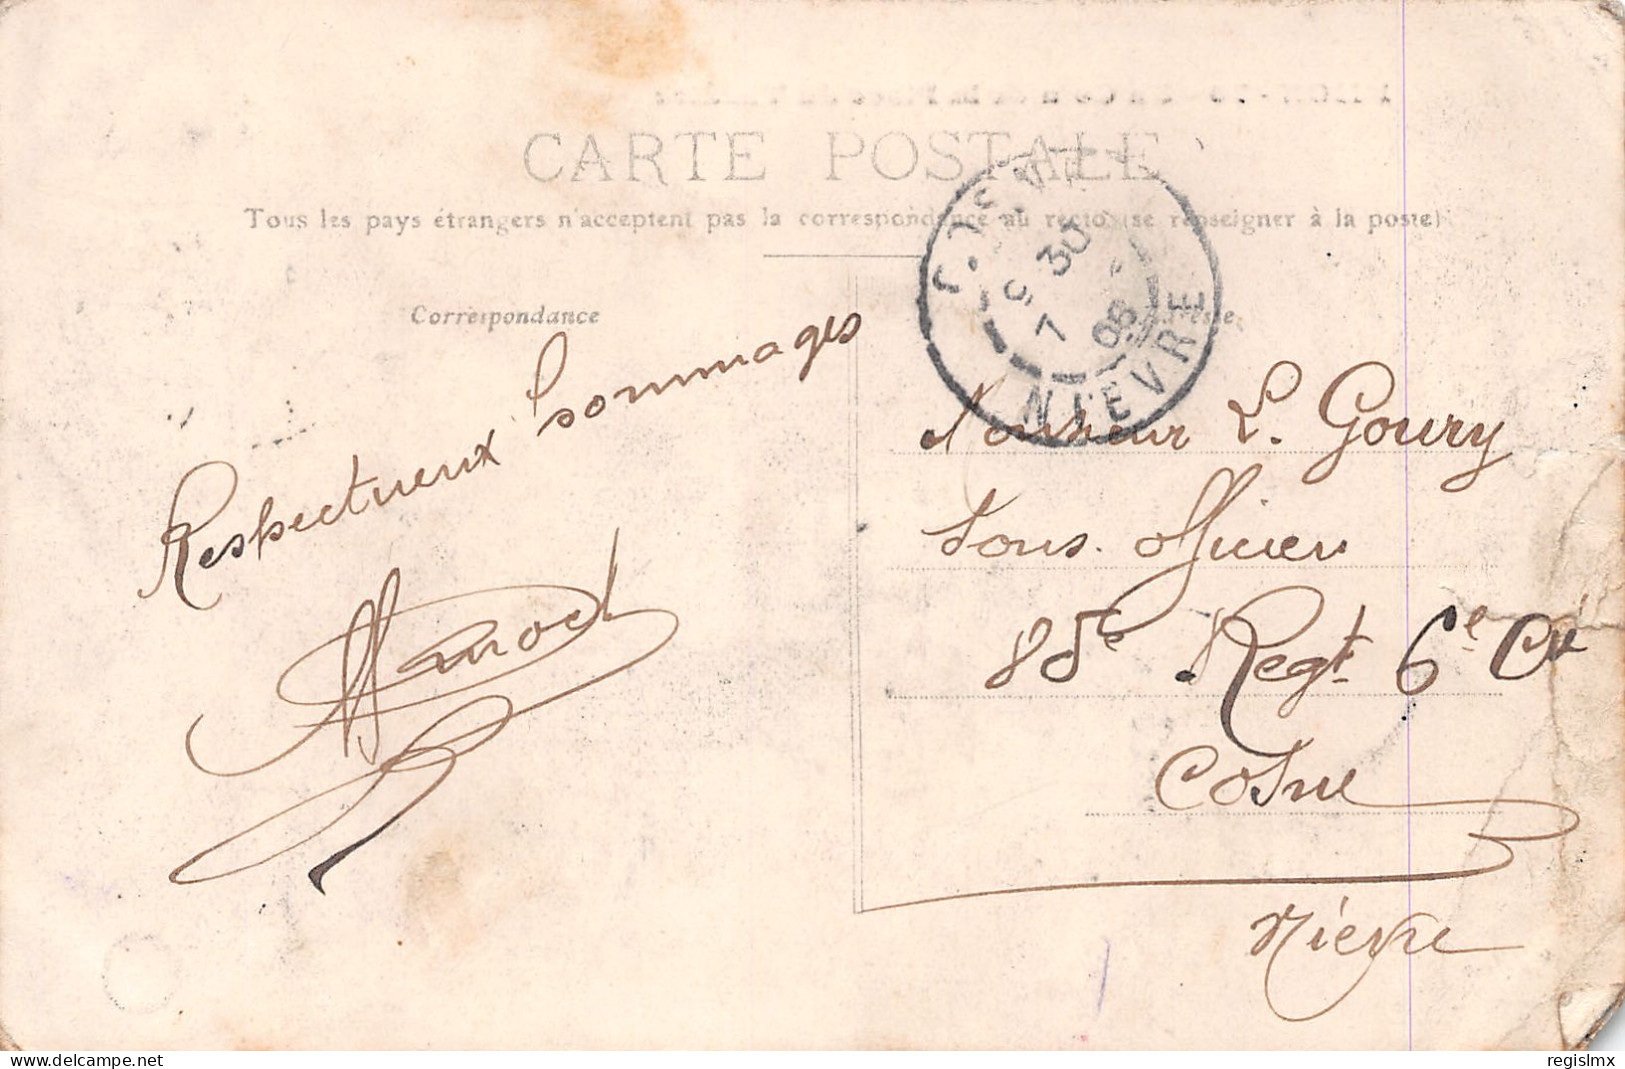 CARTE POSTALE
Tous les pays étrangers n'acceptent pas la correspondance au recto (se renseigner à la poste)
Correspondance
9 30
7
NIÈVRE
Respectueux hommages
Monsieur L. Goury
Sous-officier
85e Regt 6e Cie
Cosne
Nièvre
delcampe.net
regislmx